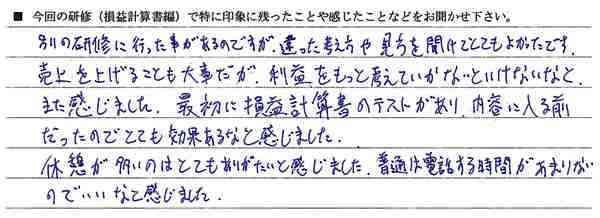 ■ 今回の研修（損益計算書編）で特に印象に残ったことや感じたことなどをお聞かせ下さい。
別の研修に行った事があるのですが、違った考え方や見方を聞けてとてもよかったです。
売上を上げることも大事だが、利益をもっと考えていかないといけないなと、
また感じました。最初に損益計算書のテストがあり、内容に入る前
だったのでとても効果あるなと感じました。
休憩が多いのはとてもありがたいと感じました。普通は電話する時間があまりない
のでいいなと感じました。